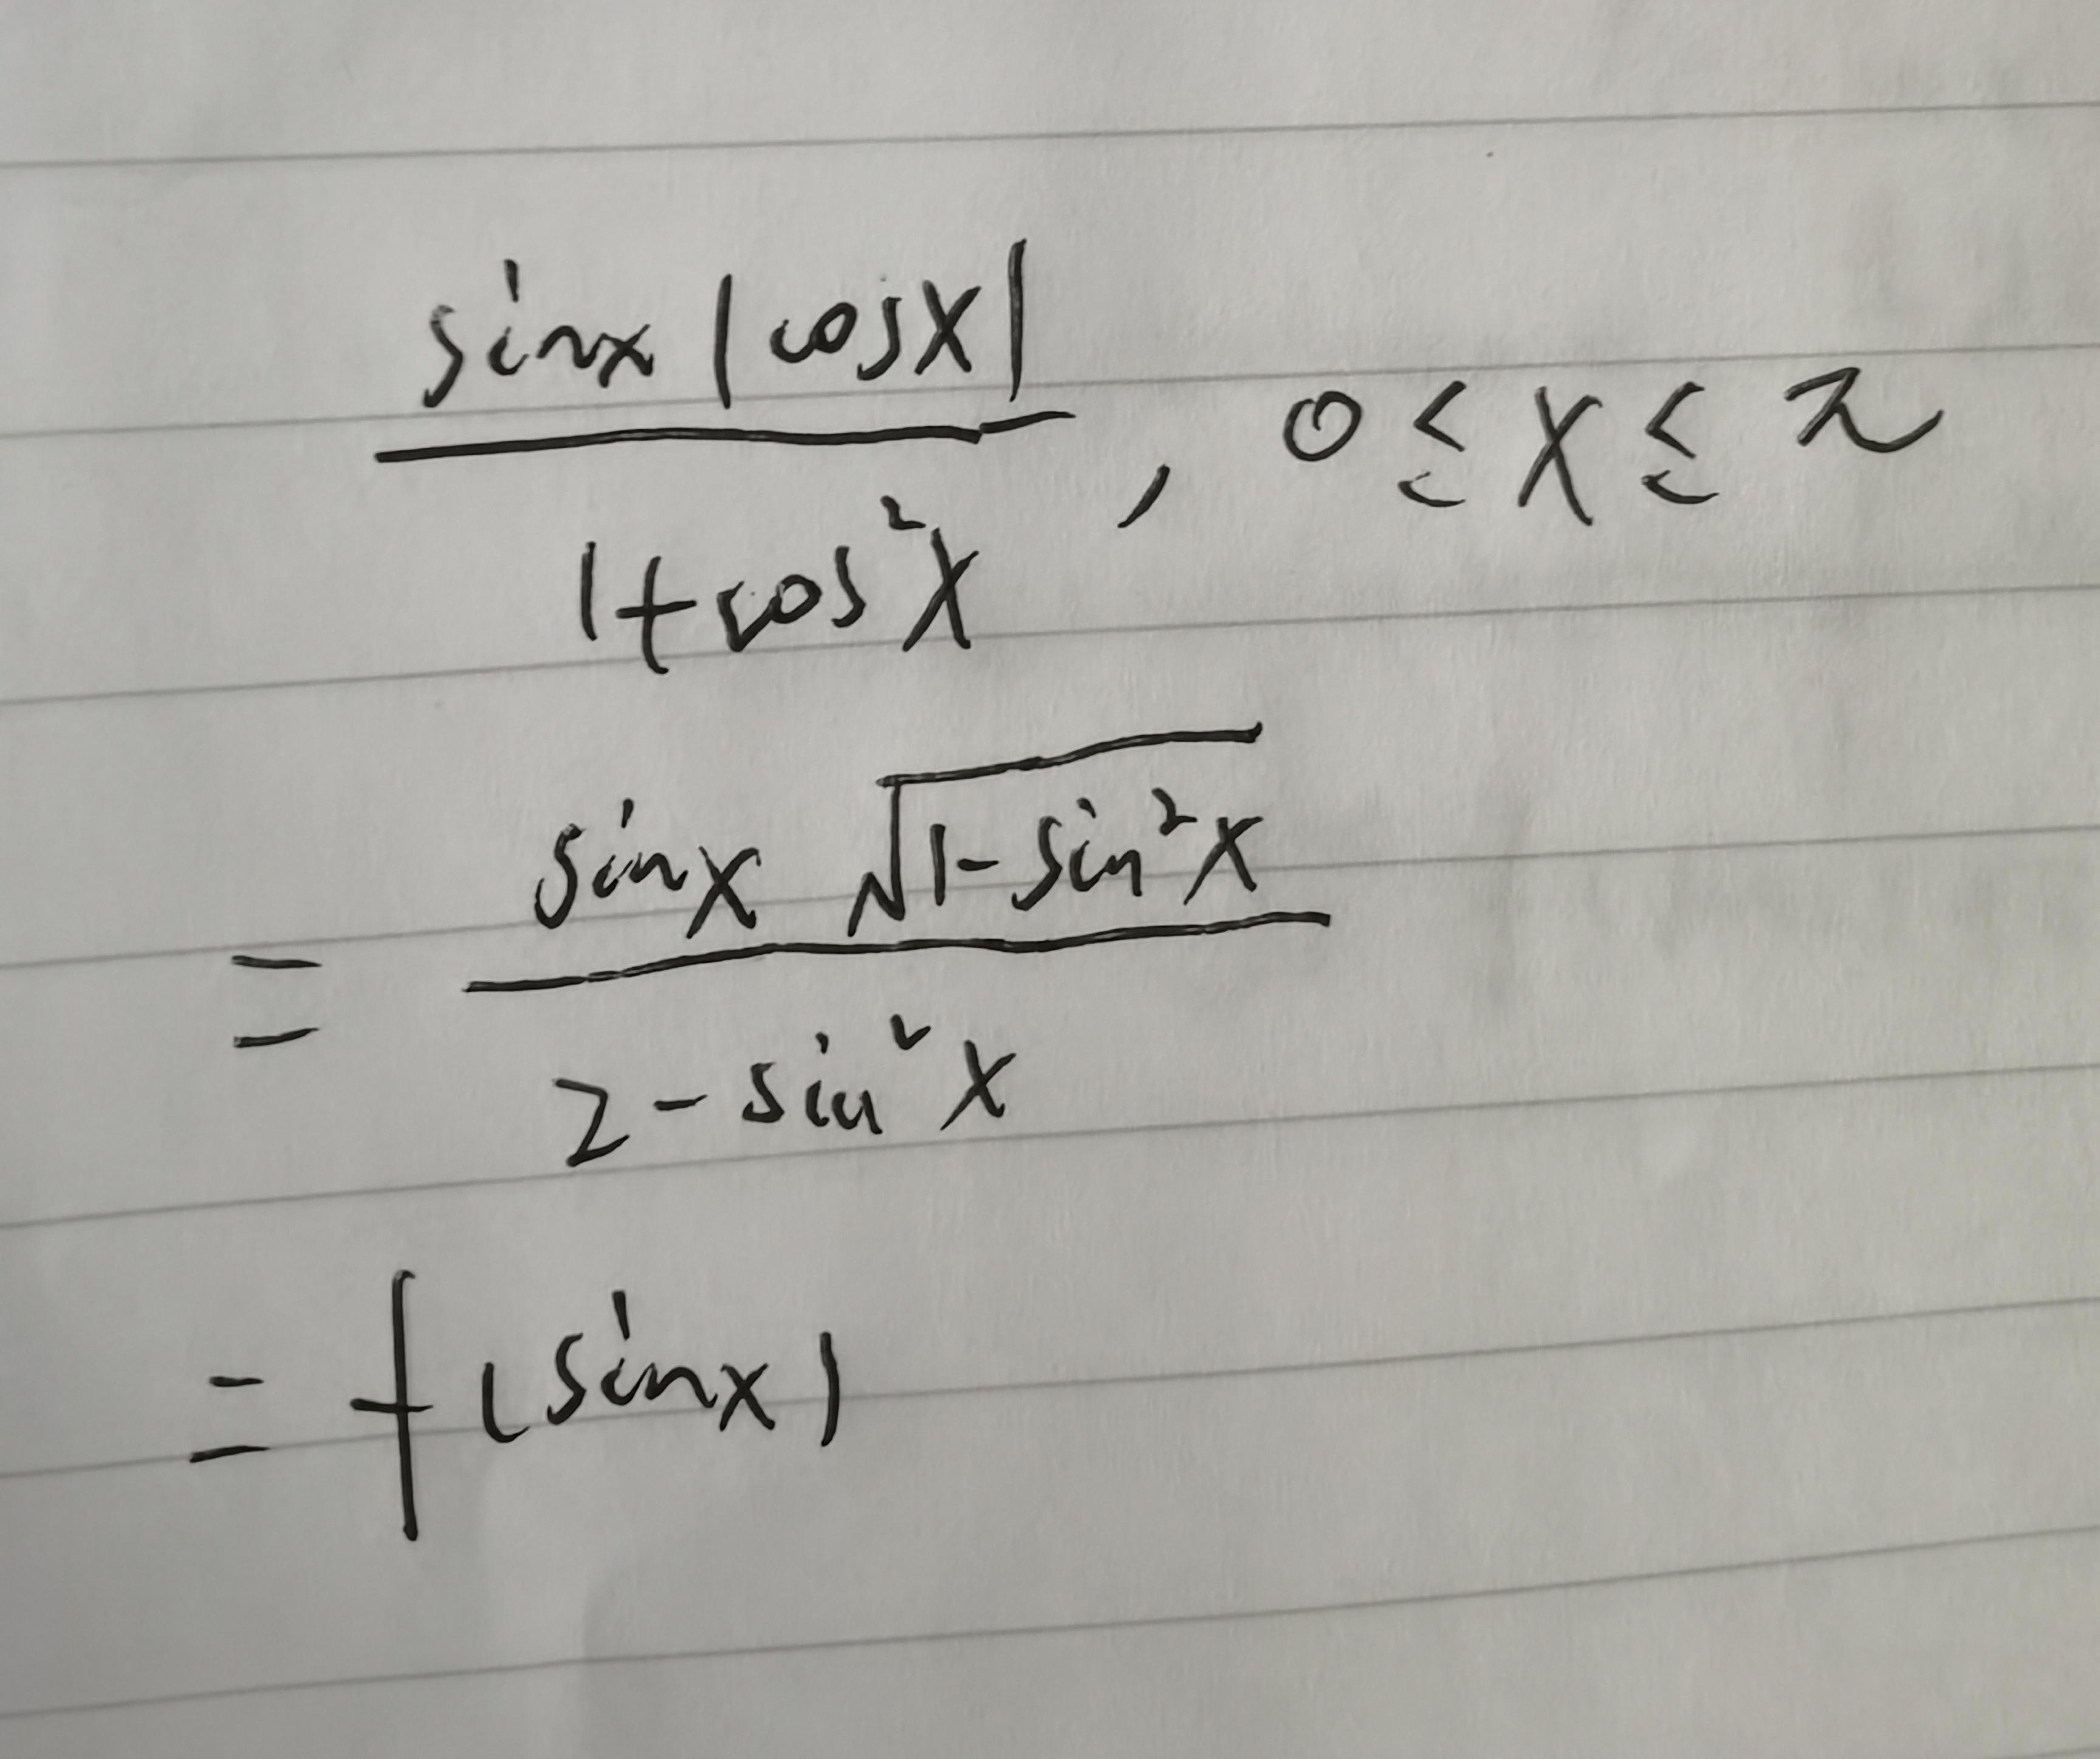 sinx |cosx| / 1+cos²x , 0 ≤ x ≤ π
= sinx √(1-sin²x) / 2-sin²x
= f(sinx)